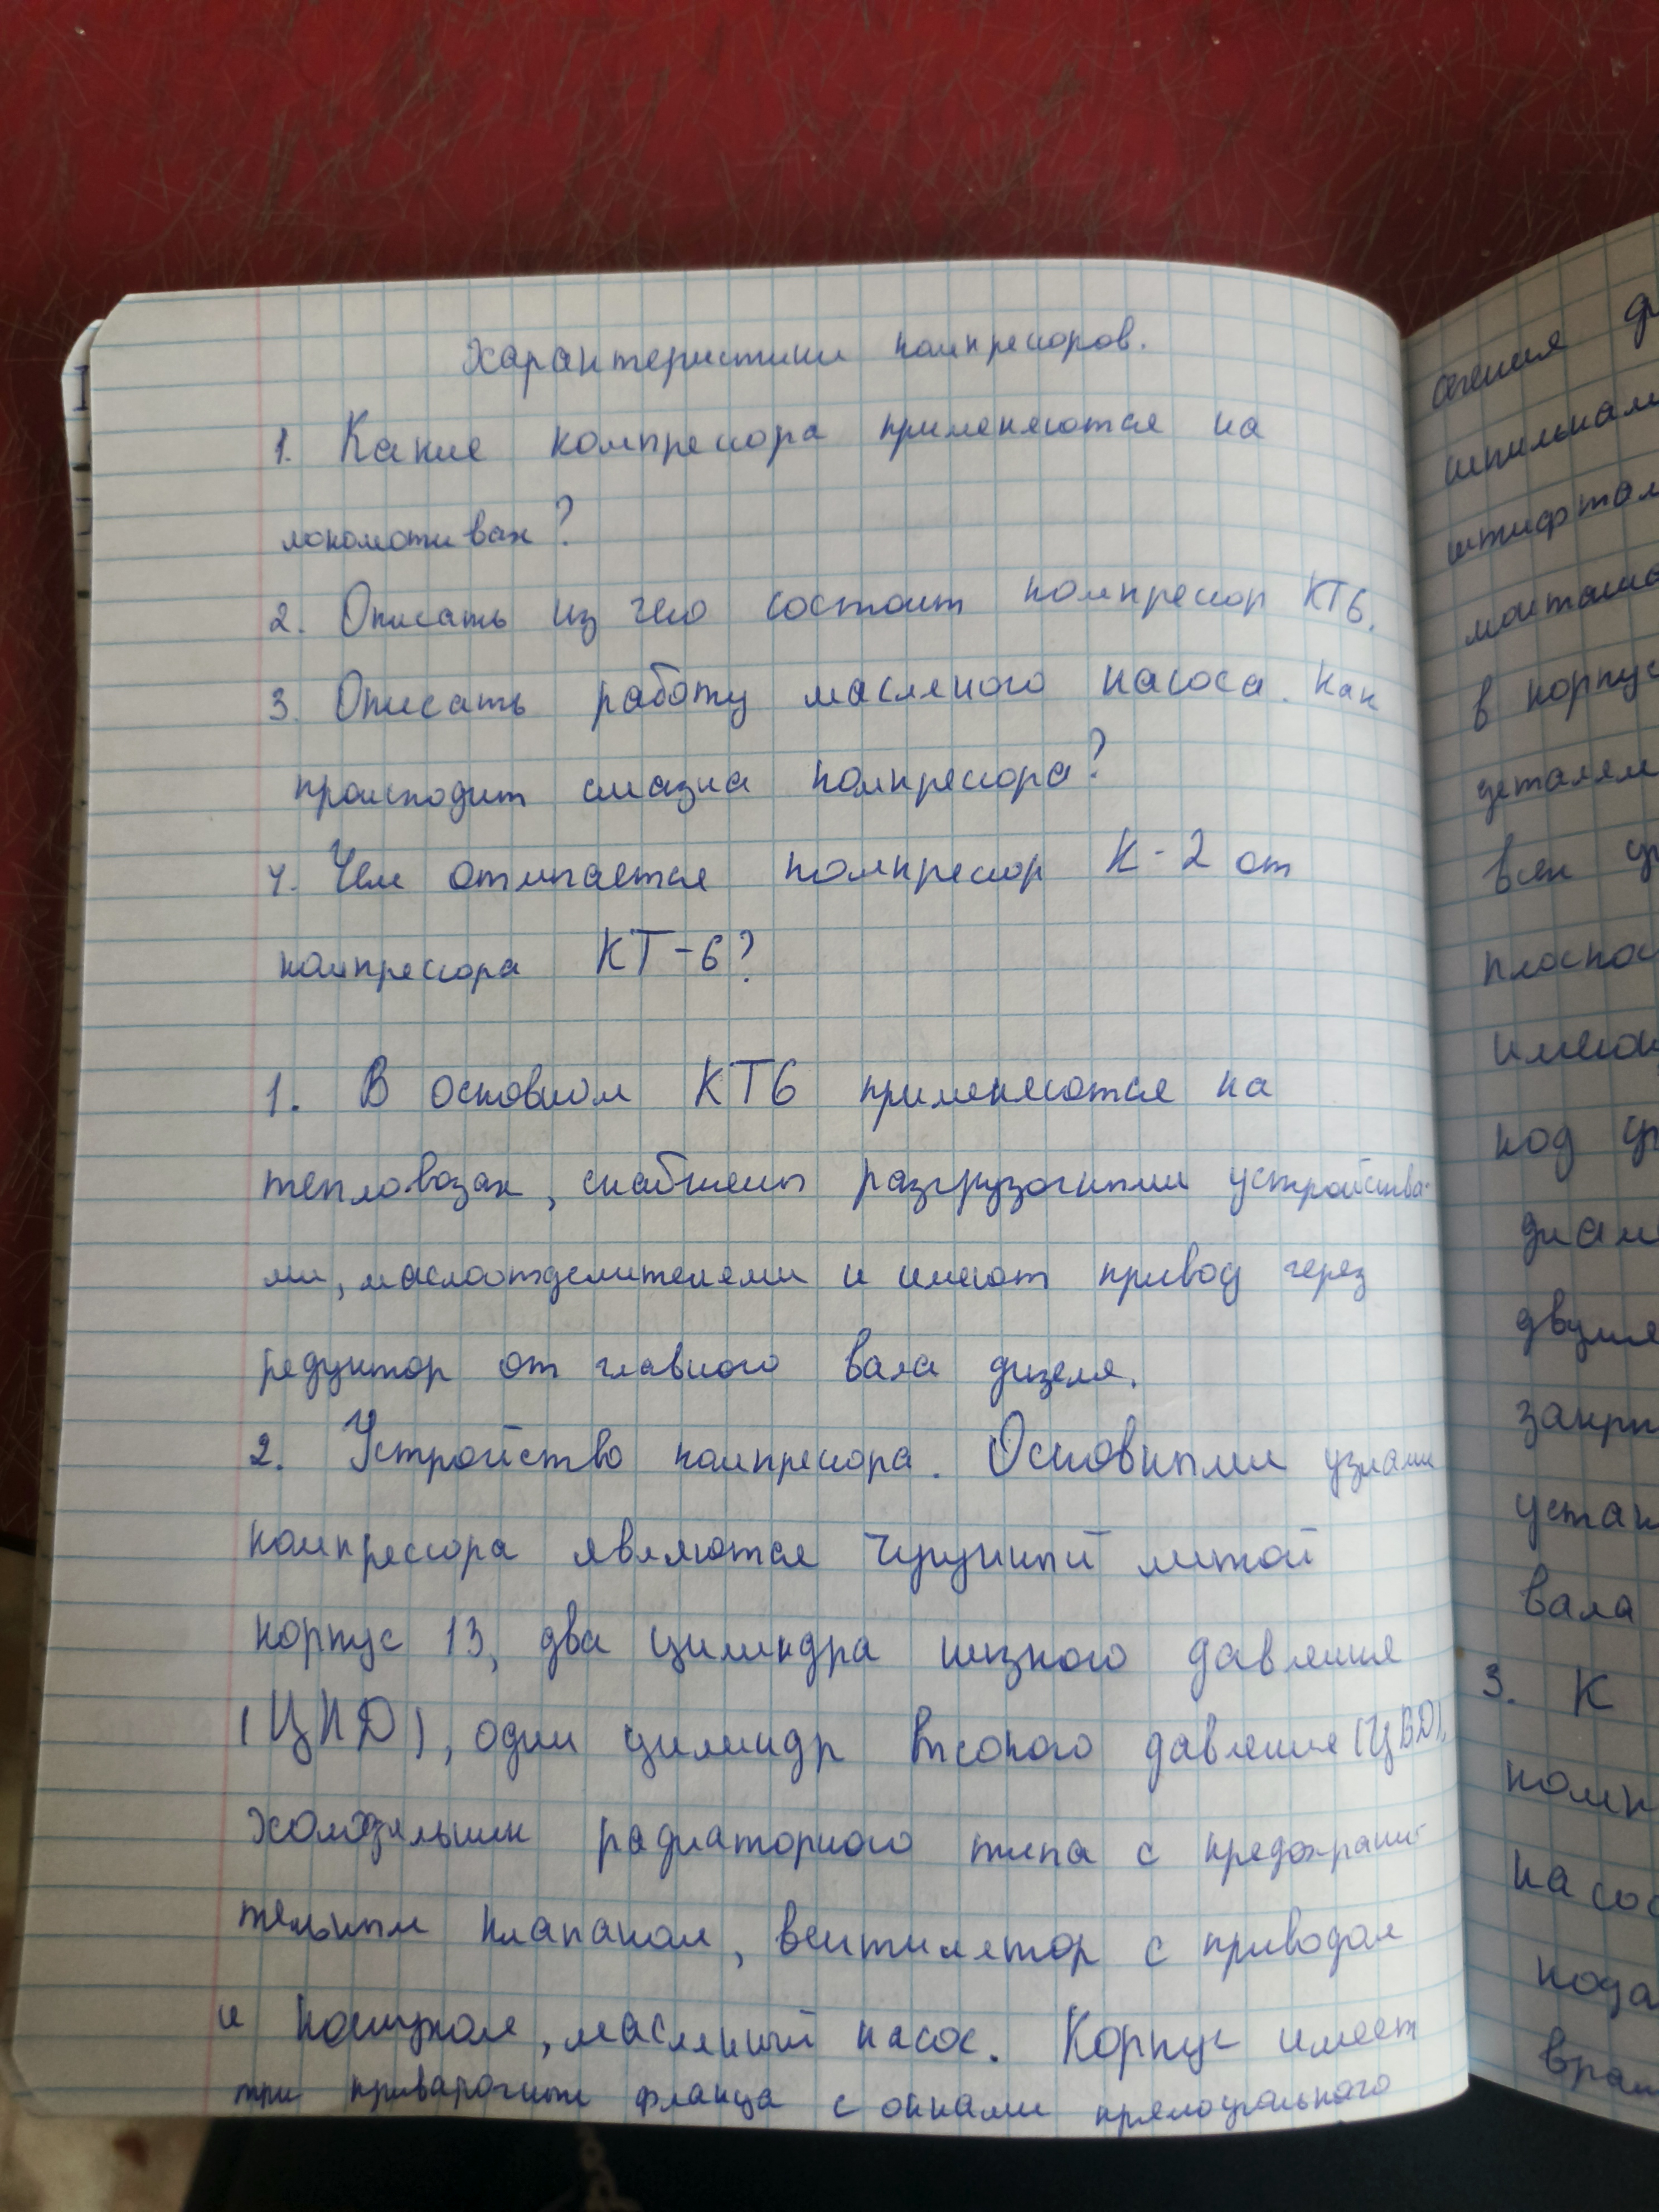 Характеристики компрессоров.
1. Какие компрессора применяются на
локомотивах?
2. Описать из чего состоит компрессор КТ6.
3. Описать работу масленого насоса. Как
происходит смазка компрессора?
4. Чем отличается компрессор К-2 от
компрессора КТ-6?
1. В основном КТ6 применяются на
тепловозах, снабжены разгрузочными устройства-
ми, маслоотделителями и имеют привод через
редуктор от главного вала дизеля.
2. Устройство компрессора. Основными узлами
компрессора являются чугунный литой
корпус 13, два цилиндра низкого давления
(ЦНД), один цилиндр высокого давления (ЦВД),
холодильник радиаторного типа с предохрани-
тельным клапаном, вентилятор с приводом
и кожухом, масленый насос. Корпус имеет
три приварочных фланца с окнами прямоугольного
сечения
шпилькам
штифтом
в корпус
деталям
всех
имеют
под
двумя
вала
3. К